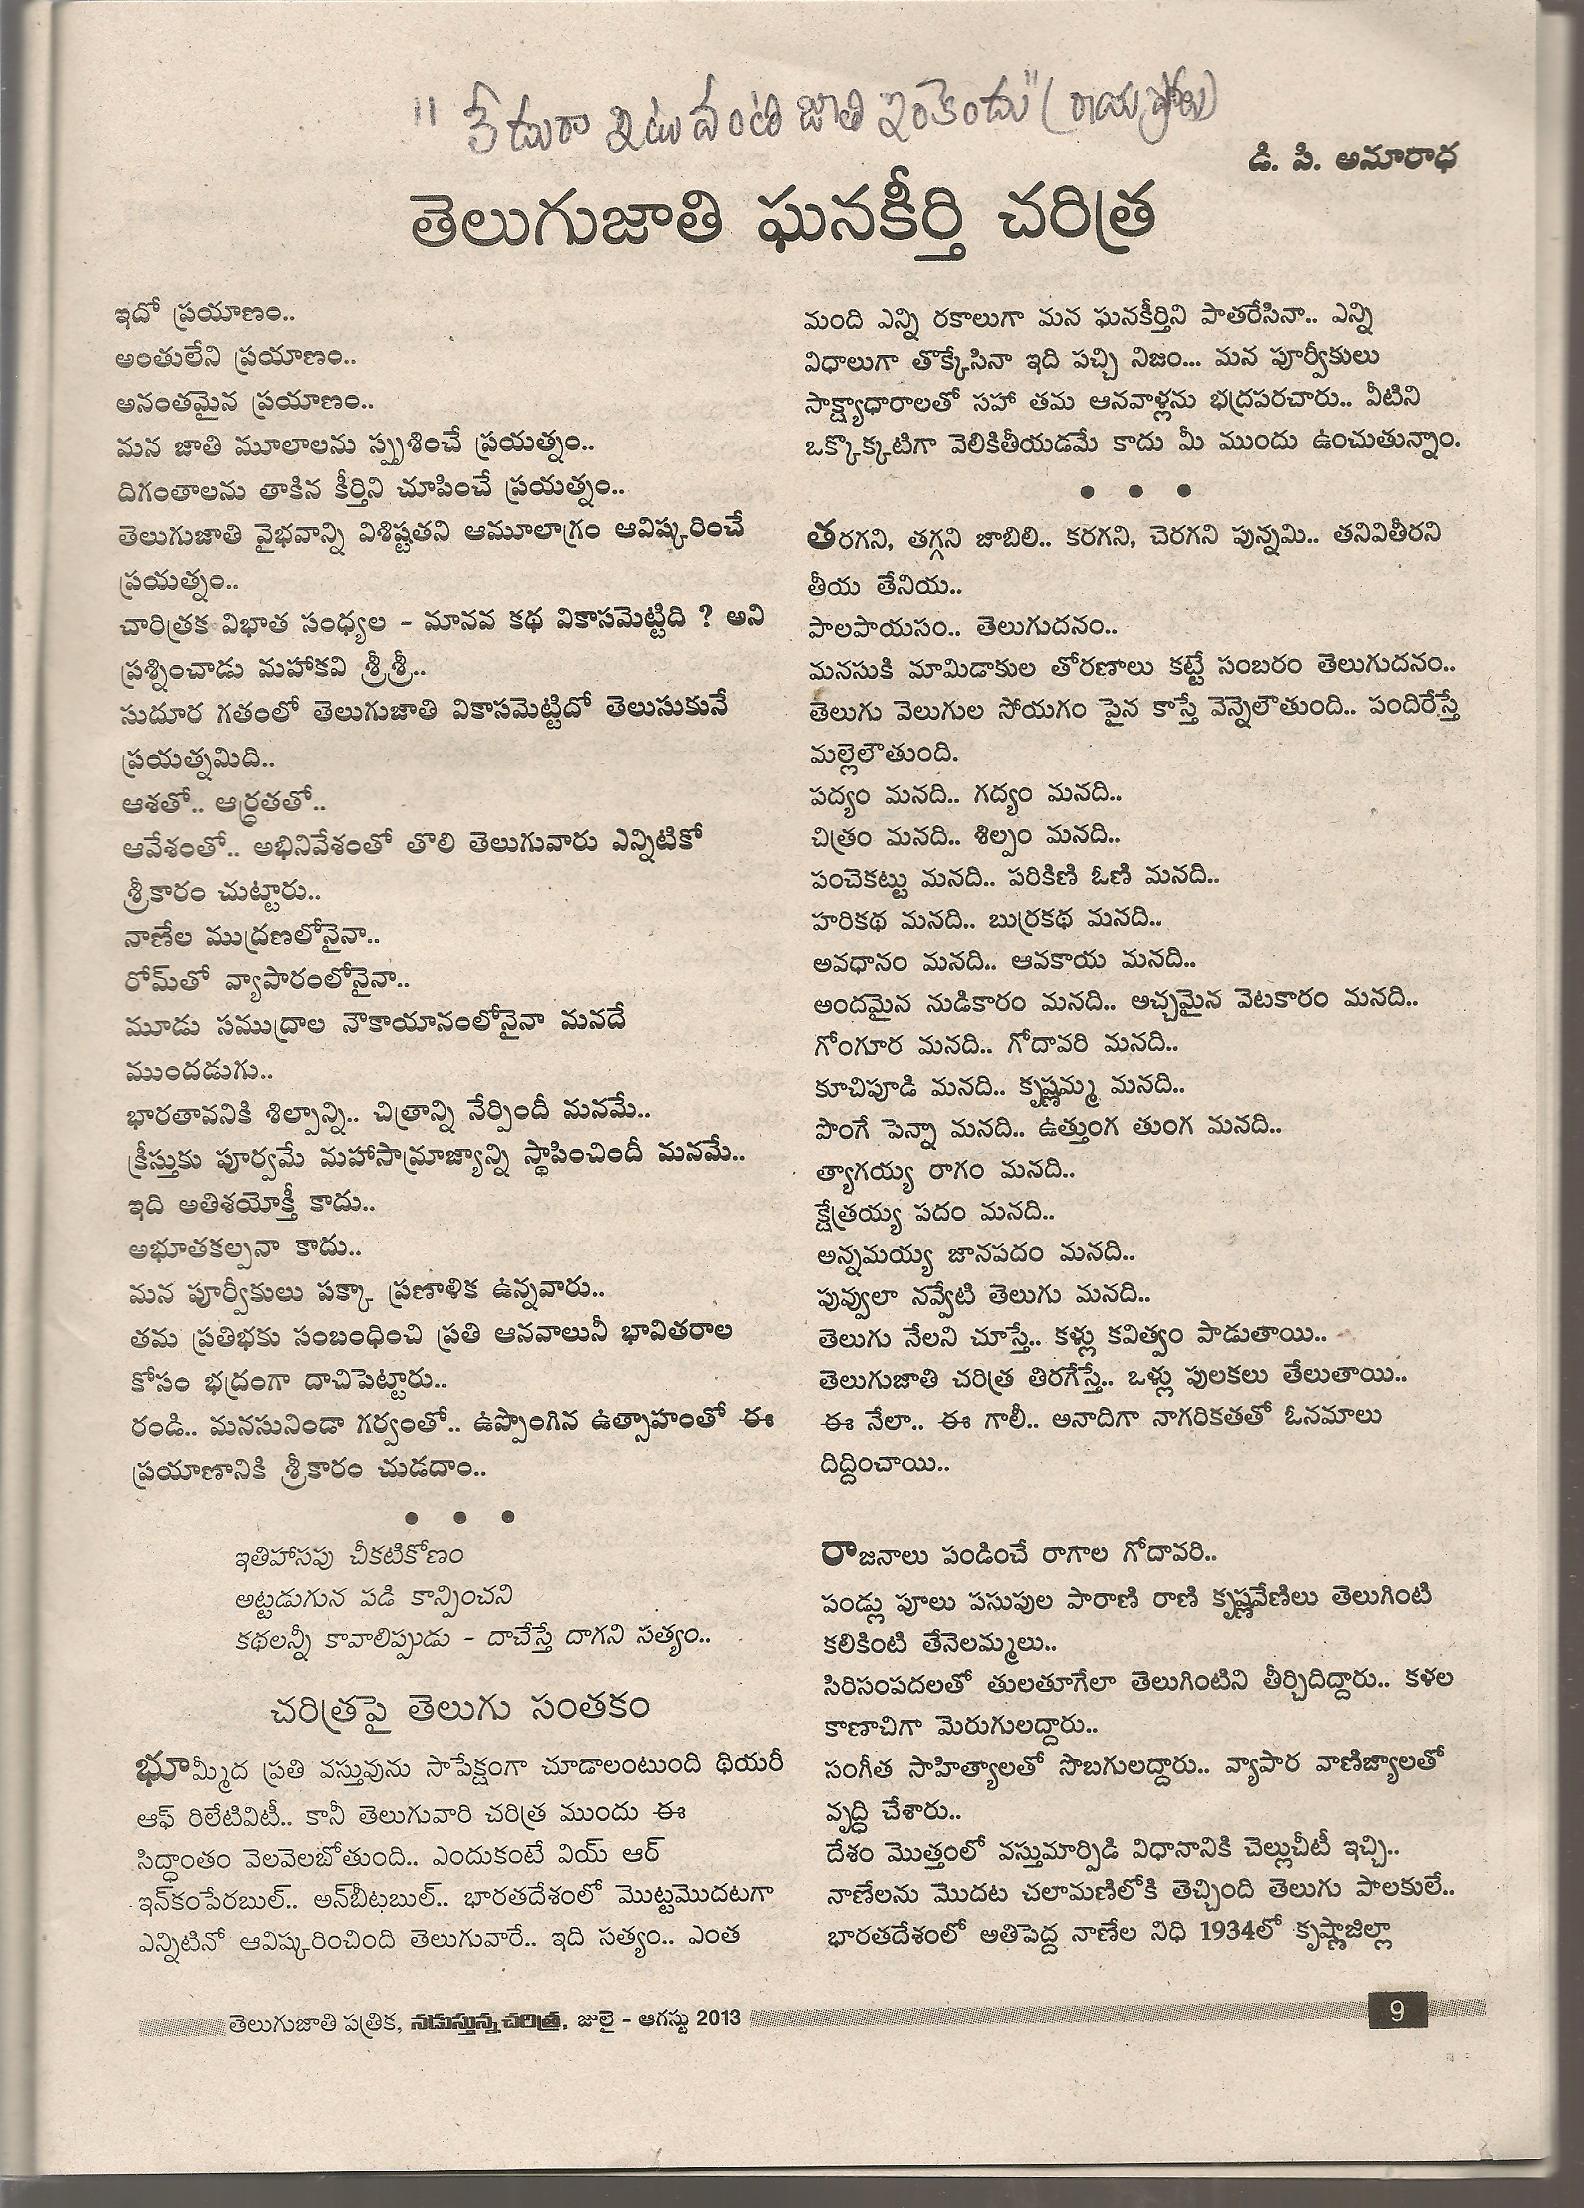 "లేడురా ఇటువంటి జాతి ఇంకెందు" (రాయప్రోలు)
డి. పి. అనూరాధ
తెలుగుజాతి ఘనకీర్తి చరిత్ర
ఇదో ప్రయాణం..
అంతులేని ప్రయాణం..
అనంతమైన ప్రయాణం..
మన జాతి మూలాలను స్పృశించే ప్రయత్నం..
దిగంతాలను తాకిన కీర్తిని చూపించే ప్రయత్నం..
తెలుగుజాతి వైభవాన్ని విశిష్టతని ఆమూలాగ్రం ఆవిష్కరించే
ప్రయత్నం..
చారిత్రక విభాత సంధ్యల - మానవ కథ వికాసమెట్టిది ? అని
ప్రశ్నించాడు మహాకవి శ్రీశ్రీ..
సుదూర గతంలో తెలుగుజాతి వికాసమెట్టిదో తెలుసుకునే
ప్రయత్నమిది..
ఆశతో.. ఆర్ద్రతతో..
ఆవేశంతో.. అభినివేశంతో తొలి తెలుగువారు ఎన్నిటికో
శ్రీకారం చుట్టారు..
నాణేల ముద్రణలోనైనా..
రోమ్‌తో వ్యాపారంలోనైనా..
మూడు సముద్రాల నౌకాయానంలోనైనా మనదే
ముందడుగు..
భారతావనికి శిల్పాన్ని.. చిత్రాన్ని నేర్పిందీ మనమే..
క్రీస్తుకు పూర్వమే మహాసామ్రాజ్యాన్ని స్థాపించిందీ మనమే..
ఇది అతిశయోక్తీ కాదు..
అభూతకల్పనా కాదు..
మన పూర్వీకులు పక్కా ప్రణాళిక ఉన్నవారు..
తమ ప్రతిభకు సంబంధించి ప్రతి ఆనవాలునీ భావితరాల
కోసం భద్రంగా దాచిపెట్టారు..
రండి.. మనసునిండా గర్వంతో.. ఉప్పొంగిన ఉత్సాహంతో ఈ
ప్రయాణానికి శ్రీకారం చుడదాం..
• • •
ఇతిహాసపు చీకటికోణం
అట్టడుగున పడి కాన్పించని
కథలన్నీ కావాలిప్పుడు - దాచేస్తే దాగని సత్యం..
చరిత్రపై తెలుగు సంతకం
భూమ్మీద ప్రతి వస్తువును సాపేక్షంగా చూడాలంటుంది థియరీ
ఆఫ్ రిలేటివిటీ.. కానీ తెలుగువారి చరిత్ర ముందు ఈ
సిద్ధాంతం వెలవెలబోతుంది.. ఎందుకంటే వియ్ ఆర్
ఇన్‌కంపేరబుల్.. అన్‌బీటబుల్.. భారతదేశంలో మొట్టమొదటగా
ఎన్నిటినో ఆవిష్కరించింది తెలుగువారే.. ఇది సత్యం.. ఎంత
మంది ఎన్ని రకాలుగా మన ఘనకీర్తిని పాతరేసినా.. ఎన్ని
విధాలుగా తొక్కేసినా ఇది పచ్చి నిజం... మన పూర్వీకులు
సాక్ష్యాధారాలతో సహా తమ ఆనవాళ్లను భద్రపరచారు.. వీటిని
ఒక్కొక్కటిగా వెలికితీయడమే కాదు మీ ముందు ఉంచుతున్నాం.
• • •
తరగని, తగ్గని జాబిలి.. కరగని, చెరగని పున్నమి.. తనివితీరని
తీయ తేనియ..
పాలపాయసం.. తెలుగుదనం..
మనసుకి మామిడాకుల తోరణాలు కట్టే సంబరం తెలుగుదనం..
తెలుగు వెలుగుల సోయగం పైన కాస్తే వెన్నెలౌతుంది.. పందిరేస్తే
మల్లెలౌతుంది.
పద్యం మనది.. గద్యం మనది..
చిత్రం మనది.. శిల్పం మనది..
పంచెకట్టు మనది.. పరికిణి ఓణి మనది..
హరికథ మనది.. బుర్రకథ మనది..
అవధానం మనది.. ఆవకాయ మనది..
అందమైన నుడికారం మనది.. అచ్చమైన వెటకారం మనది..
గోంగూర మనది.. గోదావరి మనది..
కూచిపూడి మనది.. కృష్ణమ్మ మనది..
పొంగే పెన్నా మనది.. ఉత్తుంగ తుంగ మనది..
త్యాగయ్య రాగం మనది..
క్షేత్రయ్య పదం మనది..
అన్నమయ్య జానపదం మనది..
పువ్వులా నవ్వేటి తెలుగు మనది..
తెలుగు నేలని చూస్తే.. కళ్లు కవిత్వం పాడుతాయి..
తెలుగుజాతి చరిత్ర తిరగేస్తే.. ఒళ్లు పులకలు తేలుతాయి..
ఈ నేలా.. ఈ గాలీ.. అనాదిగా నాగరికతతో ఓనమాలు
దిద్దించాయి..
రాజనాలు పండించే రాగాల గోదావరి..
పండ్లు పూలు పసుపుల పారాణి రాణి కృష్ణవేణిలు తెలుగింటి
కలికింటి తేనెలమ్మలు..
సిరిసంపదలతో తులతూగేలా తెలుగింటిని తీర్చిదిద్దారు.. కళల
కాణాచిగా మెరుగులద్దారు..
సంగీత సాహిత్యాలతో సొబగులద్దారు.. వ్యాపార వాణిజ్యాలతో
వృద్ధి చేశారు..
దేశం మొత్తంలో వస్తుమార్పిడి విధానానికి చెల్లుచీటీ ఇచ్చి..
నాణేలను మొదట చలామణిలోకి తెచ్చింది తెలుగు పాలకులే..
భారతదేశంలో అతిపెద్ద నాణేల నిధి 1934లో కృష్ణాజిల్లా
తెలుగుజాతి పత్రిక, నడుస్తున్న చరిత్ర, జులై - ఆగస్టు 2013
9